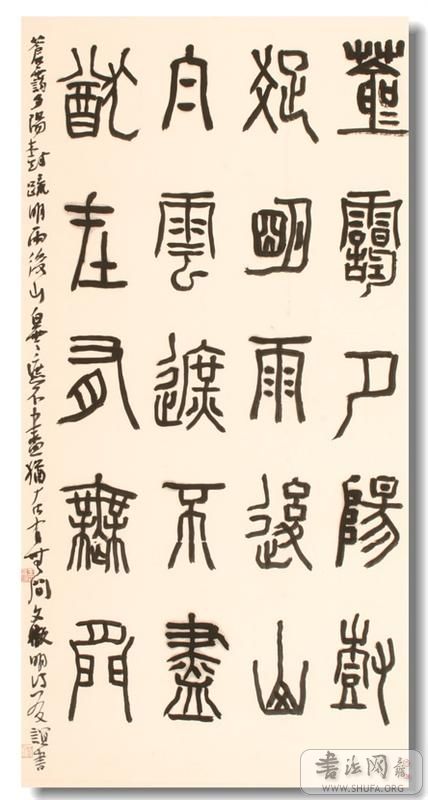 蒼靄夕陽樹
疏明雨後山
白雲遮不盡
猶在有無間
蒼靄夕陽樹疏明雨後山白雲遮不盡猶在有無間文徵明詩友誼書
書法网
WWW.SHUFA.ORG